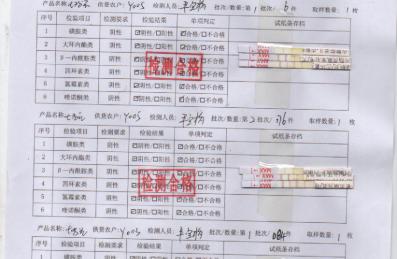 产品名称: 供货农户: Y005 检测人员: 批次/数量:第1批次/6件 取样数量:1枚
序号 检验项目 检测要求 检验结果 单项判定 试纸条存档
1 磺胺类 阴性 ☑阴性/□阳性 ☑合格/□不合格
2 大环内酯类 阴性 ☑阴性/□阳性 ☑合格/□不合格
3 β一内酰胺类 阴性 ☑阴性/□阳性 ☑合格/□不合格
4 四环素类 阴性 ☑阴性/□阳性 ☑合格/□不合格
5 氯霉素类 阴性 ☑阴性/□阳性 ☑合格/□不合格
6 喹诺酮类 阴性 ☑阴性/□阳性 ☑合格/□不合格
检测合格
产品名称: 供货农户: Y005 检测人员: 批次/数量:第2批次/36件 取样数量:1枚
序号 检验项目 检测要求 检验结果 单项判定 试纸条存档
1 磺胺类 阴性 ☑阴性/□阳性 ☑合格/□不合格
2 大环内酯类 阴性 ☑阴性/□阳性 ☑合格/□不合格
3 β一内酰胺类 阴性 ☑阴性/□阳性 ☑合格/□不合格
4 四环素类 阴性 ☑阴性/□阳性 ☑合格/□不合格
5 氯霉素类 阴性 ☑阴性/□阳性 ☑合格/□不合格
6 喹诺酮类 阴性 ☑阴性/□阳性 ☑合格/□不合格
检测合格
产品名称: 供货农户: Y005 检测人员: 批次/数量:第1批次/ 件 取样数量: 1枚
序号 检验项目 检测要求 检验结果 单项判定 试纸条存档